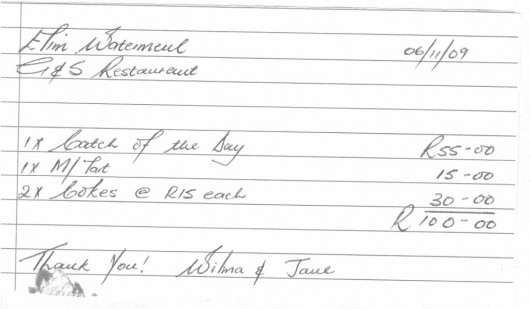 Elim Watermeul 06/11/09
G & S Restaurant
1 x Catch of the Day R55-00
1x M/Tart 15-00
2x Cokes @ R15 each 30-00
R 100-00
Thank You! Wilma & Jane